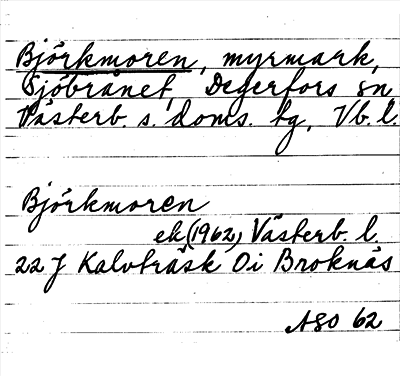 Björkmoren, myrmark,
Sjöbrånet, Degerfors sn
Västerb. s. doms. tg, Vb. l.
Björkmoren
ek (1962) Västerb. l.
22 J Kalvträsk Oi Broknäs
ASO 62